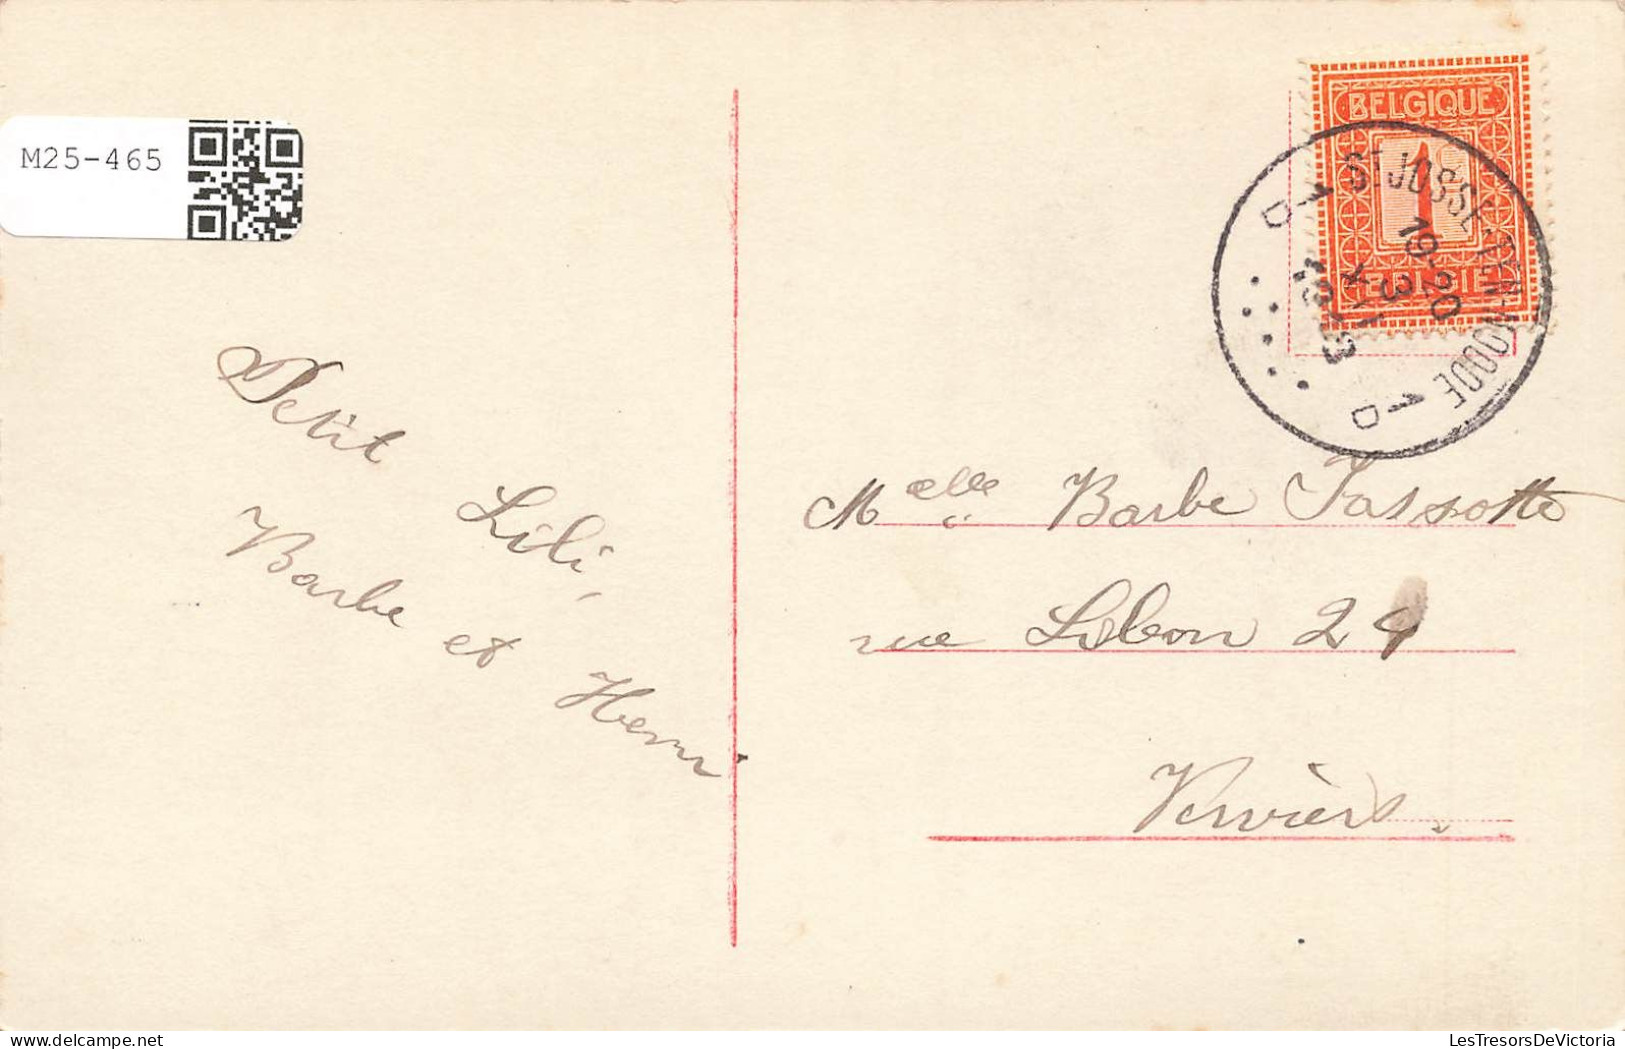 M25-465
BELGIQUE
1
BELGIË
ST JOSSE-TEN-NOODE
19-20
3
XII
1D 1D
Petit
Lili,
Barbe et Henri
Melle Barbe
rue 24
Verviers.
LesTresorsDeVictoria